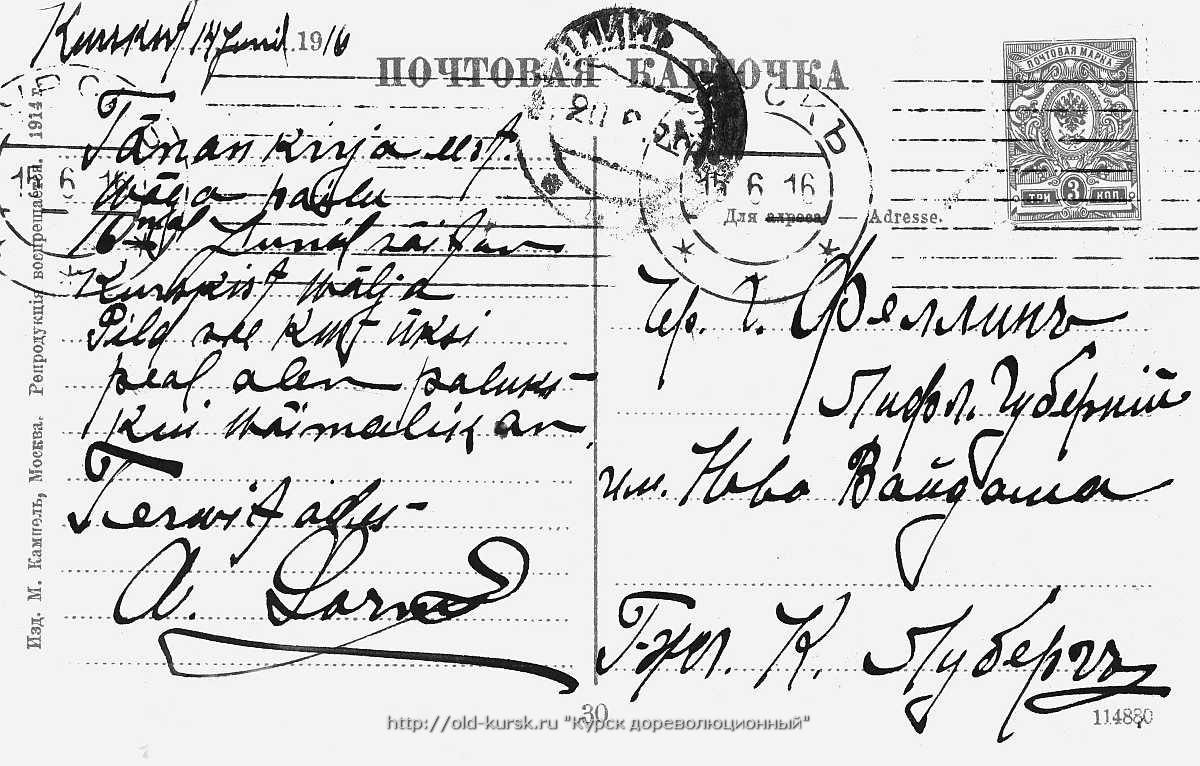 Kurskist 14 Junil 1916
ПОЧТОВАЯ КАРТОЧКА
ПОЧТОВАЯ МАРКА
ТРИ 3 КОП
15 6 16
15 6 16
Для адреса. — Adresse.
Tänan kirja eest.
Wäga palju
16mal Junil sõitan
Kurskist wälja
Pild see kust üksi
peal olen palun
kui wõimalik on
Terwitades
A.
Чр. г. Феллинъ
Лифл. Губерніи
им. Ново Вайдома
Г-жѣ. К.
Изд. М. Кампель, Москва. Репродукція воспрещается. 1914 г.
30
114880
http://old-kursk.ru "Курск дореволюционный"